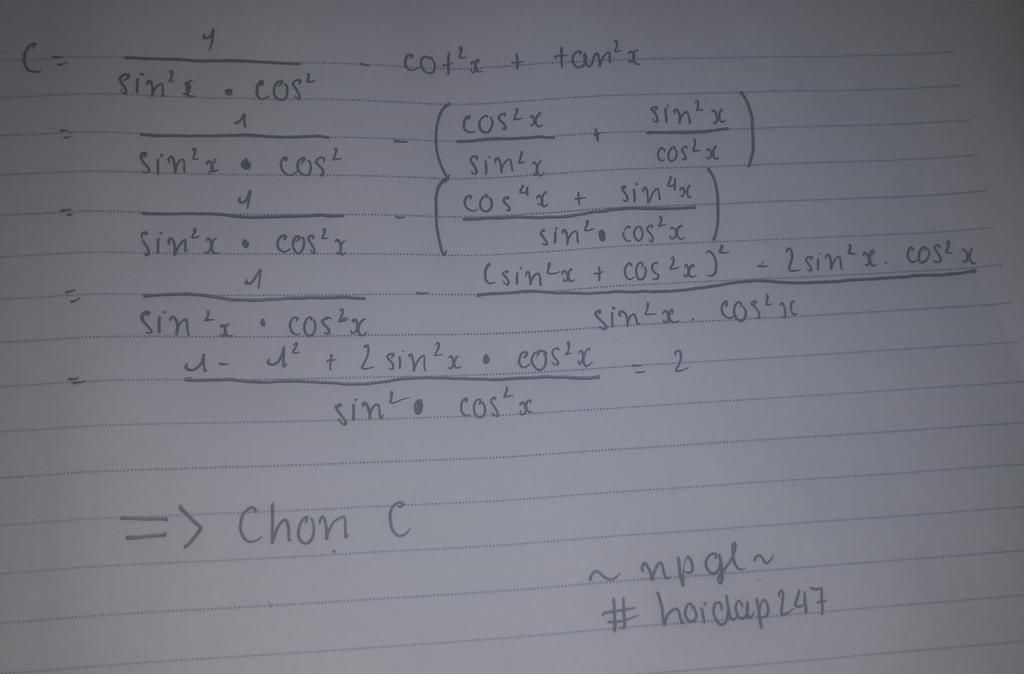 C = 1 / (sin²x . cos²) - cot²x + tan²x
= 1 / (sin²x . cos²) - (cos²x / sin²x + sin²x / cos²x)
= 1 / (sin²x . cos²x) - ((cos⁴x + sin⁴x) / (sin² . cos²x))
= 1 / (sin²x . cos²x) - ((sin²x + cos²x)² - 2sin²x . cos²x) / (sin²x . cos²x)
= (1 - 1² + 2 sin²x . cos²x) / (sin² . cos²x) = 2
=> Chọn C
~ npgl ~
# hoidap247